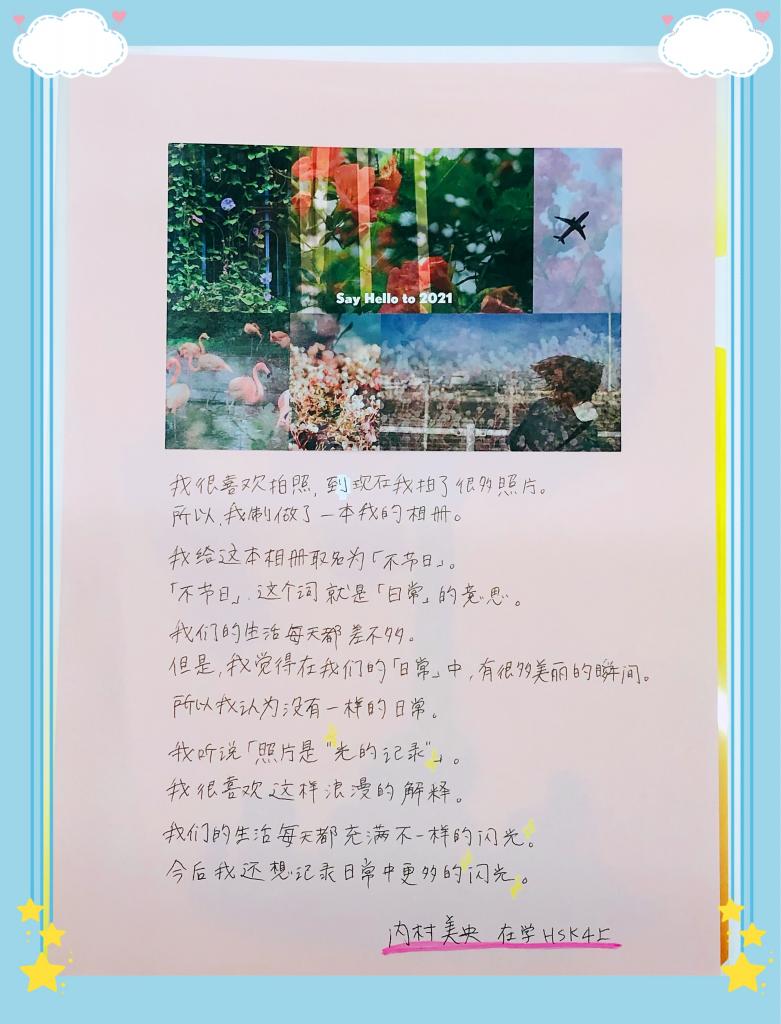 Say Hello to 2021
我很喜欢拍照，到现在我拍了很多照片。
所以，我制做了一本我的相册。
我给这本相册取名为「不节日」。
「不节日」，这个词就是「日常」的意思。
我们的生活每天都差不多。
但是，我觉得在我们的「日常」中，有很多美丽的瞬间。
所以我认为没有一样的日常。
我听说「照片是“光的记录”」。
我很喜欢这样浪漫的解释。
我们的生活每天都充满不一样的闪光。
今后我还想记录日常中更多的闪光。
内村美央 在学HSK4上